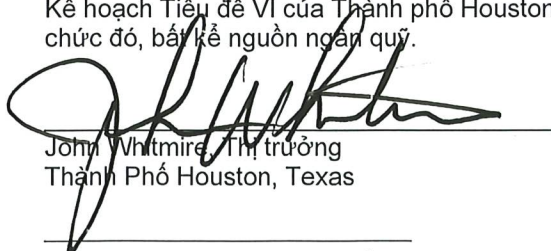 Kế hoạch Tiêu đề VI của Thành phố Houston
chức đó, bất kể nguồn ngân quỹ.
John Whitmire, Thị trưởng
Thành Phố Houston, Texas